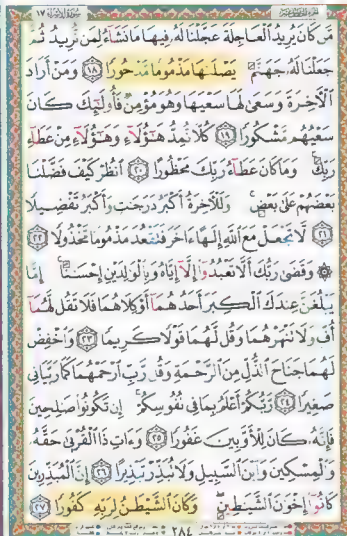 مَّن كَانَ يُرِيدُ ٱلْعَاجِلَةَ عَجَّلْنَا لَهُۥ فِيهَا مَا نَشَآءُ لِمَن نُّرِيدُ ثُمَّ
جَعَلْنَا لَهُۥ جَهَنَّمَ يَصْلَىٰهَا مَذْمُومًا مَّدْحُورًا ١٨ وَمَنْ أَرَادَ
ٱلْـَٔاخِرَةَ وَسَعَىٰ لَهَا سَعْيَهَا وَهُوَ مُؤْمِنٌ فَأُو۟لَـٰٓئِكَ كَانَ
سَعْيُهُم مَّشْكُورًا ١٩ كُلًّا نُّمِدُّ هَـٰٓؤُلَآءِ وَهَـٰٓؤُلَآءِ مِنْ عَطَآءِ
رَبِّكَ ۚ وَمَا كَانَ عَطَآءُ رَبِّكَ مَحْظُورًا ٢٠ ٱنظُرْ كَيْفَ فَضَّلْنَا
بَعْضَهُمْ عَلَىٰ بَعْضٍ ۚ وَلَلْـَٔاخِرَةُ أَكْبَرُ دَرَجَـٰتٍ وَأَكْبَرُ تَفْضِيلًا
٢١ لَّا تَجْعَلْ مَعَ ٱللَّهِ إِلَـٰهًا ءَاخَرَ فَتَقْعُدَ مَذْمُومًا مَّخْذُولًا ٢٢
۞ وَقَضَىٰ رَبُّكَ أَلَّا تَعْبُدُوٓا۟ إِلَّآ إِيَّاهُ وَبِٱلْوَٰلِدَيْنِ إِحْسَـٰنًا ۚ إِمَّا
يَبْلُغَنَّ عِندَكَ ٱلْكِبَرَ أَحَدُهُمَآ أَوْ كِلَاهُمَا فَلَا تَقُل لَّهُمَآ
أُفٍّ وَلَا تَنْهَرْهُمَا وَقُل لَّهُمَا قَوْلًا كَرِيمًا ٢٣ وَٱخْفِضْ
لَهُمَا جَنَاحَ ٱلذُّلِّ مِنَ ٱلرَّحْمَةِ وَقُل رَّبِّ ٱرْحَمْهُمَا كَمَا رَبَّيَانِى
صَغِيرًا ٢٤ رَّبُّكُمْ أَعْلَمُ بِمَا فِى نُفُوسِكُمْ ۚ إِن تَكُونُوا۟ صَـٰلِحِينَ
فَإِنَّهُۥ كَانَ لِلْأَوَّٰبِينَ غَفُورًا ٢٥ وَءَاتِ ذَا ٱلْقُرْبَىٰ حَقَّهُۥ
وَٱلْمِسْكِينَ وَٱبْنَ ٱلسَّبِيلِ وَلَا تُبَذِّرْ تَبْذِيرًا ٢٦ إِنَّ ٱلْمُبَذِّرِينَ
كَانُوٓا۟ إِخْوَٰنَ ٱلشَّيَـٰطِينِ ۖ وَكَانَ ٱلشَّيْطَـٰنُ لِرَبِّهِۦ كَفُورًا ٢٧
٢٨٤